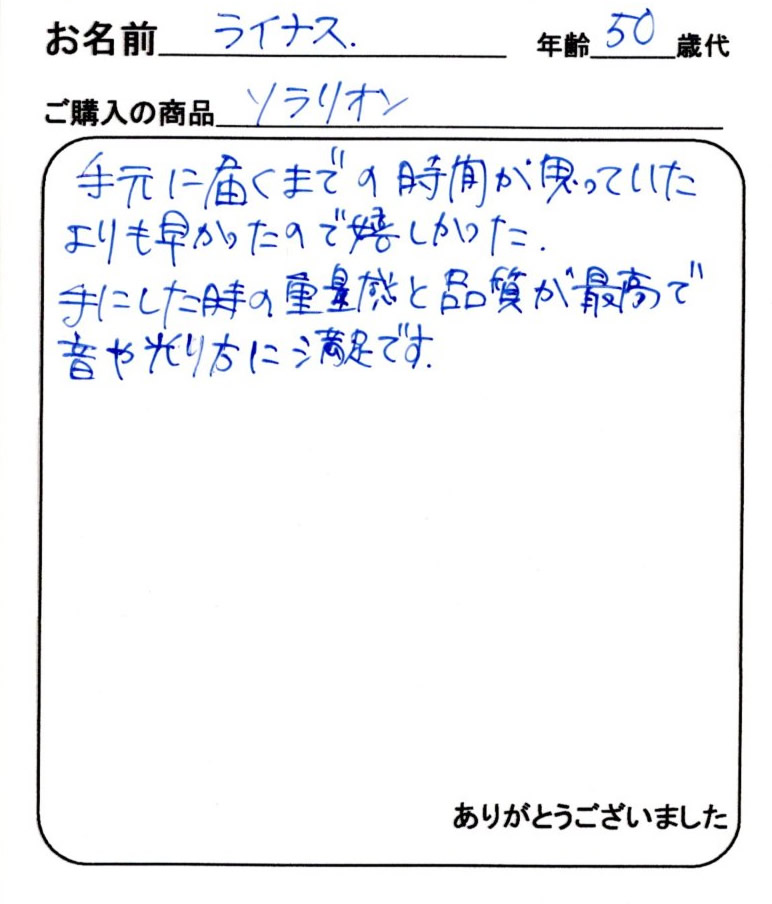 お名前 ライナス. 年齢 50 歳代
ご購入の商品 ソラリオン
手元に届くまでの時間が思っていた
よりも早かったので嬉しかった.
手にした時の重量感と品質が最高で
音や光り方に満足です.
ありがとうございました